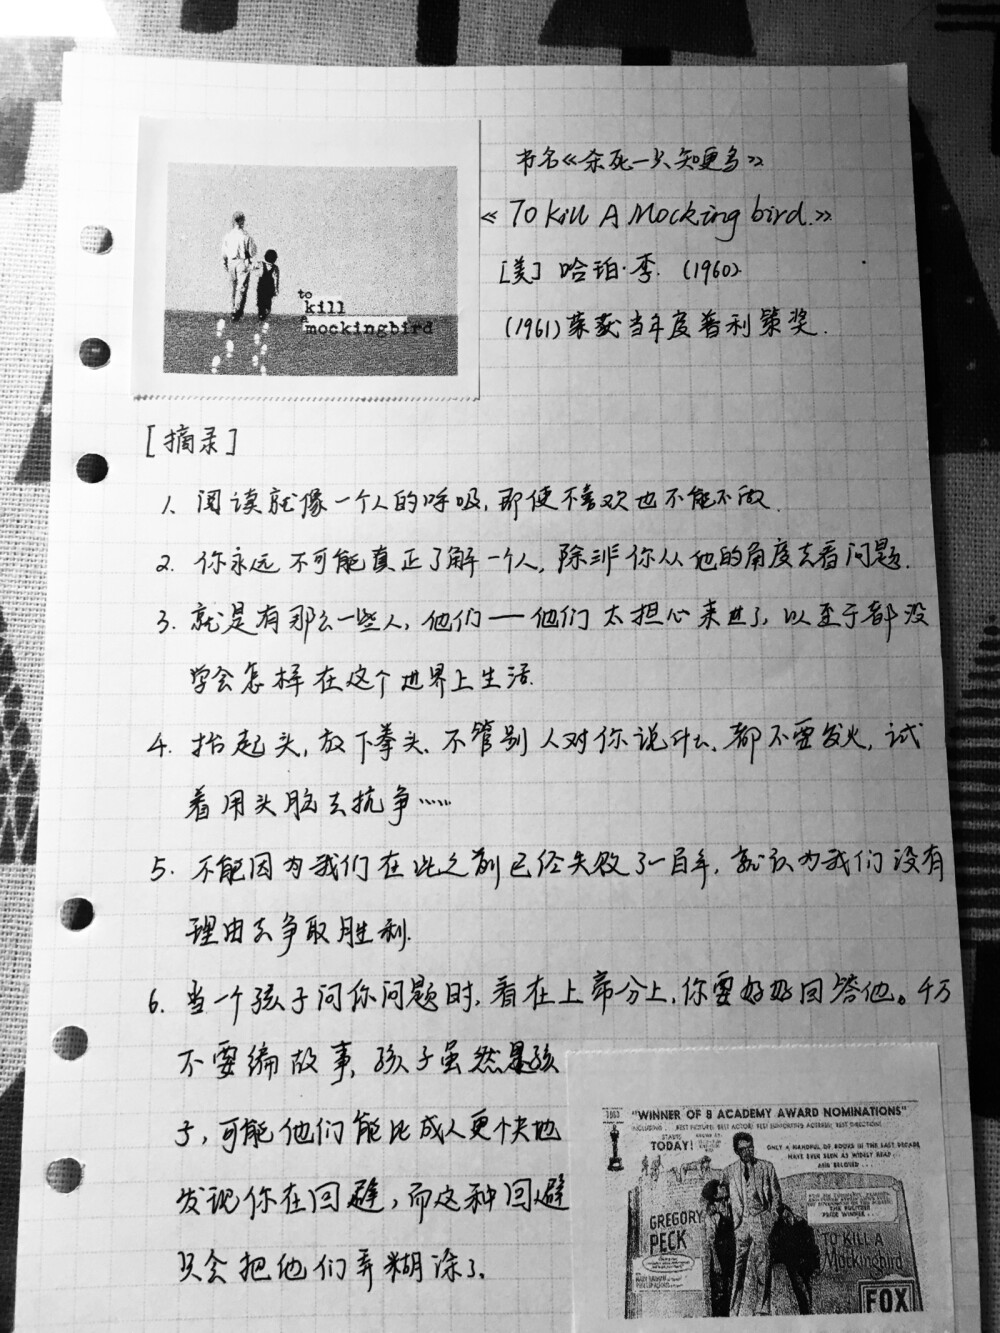 书名《杀死一只知更鸟》
《To Kill A Mocking bird.》
[美] 哈珀·李. (1960)
(1961)荣获当年度普利策奖.
to
kill
a
mockingbird
[摘录]
1. 阅读就像一个人的呼吸,即使不喜欢也不能不做.
2. 你永远不可能真正了解一个人,除非你从他的角度去看问题.
3. 就是有那么一些人,他们——他们太担心来世了,以至于都没
学会怎样在这个世界上生活.
4. 抬起头,放下拳头.不管别人对你说什么,都不要发火,试
着用头脑去抗争……
5. 不能因为我们在此之前已经失败了一百年,就认为我们没有
理由去争取胜利.
6. 当一个孩子问你问题时,看在上帝分上,你要好好回答他。千万
不要编故事,孩子虽然是孩
子,可能他们能比成人更快地
发现你在回避,而这种回避
只会把他们弄糊涂了。
1963
"WINNER OF 8 ACADEMY AWARD NOMINATIONS"
INCLUDING: BEST PICTURE; BEST ACTOR; BEST SUPPORTING ACTRESS; BEST DIRECTION
STARTS
TODAY!
ONLY A HANDFUL OF BOOKS IN THE LAST DECADE
HAVE EVER BEEN AS WIDELY READ...
AND BELOVED...
THE PULITZER
PRIZE WINNER...
GREGORY
PECK
TO KILL A
Mockingbird
FOX